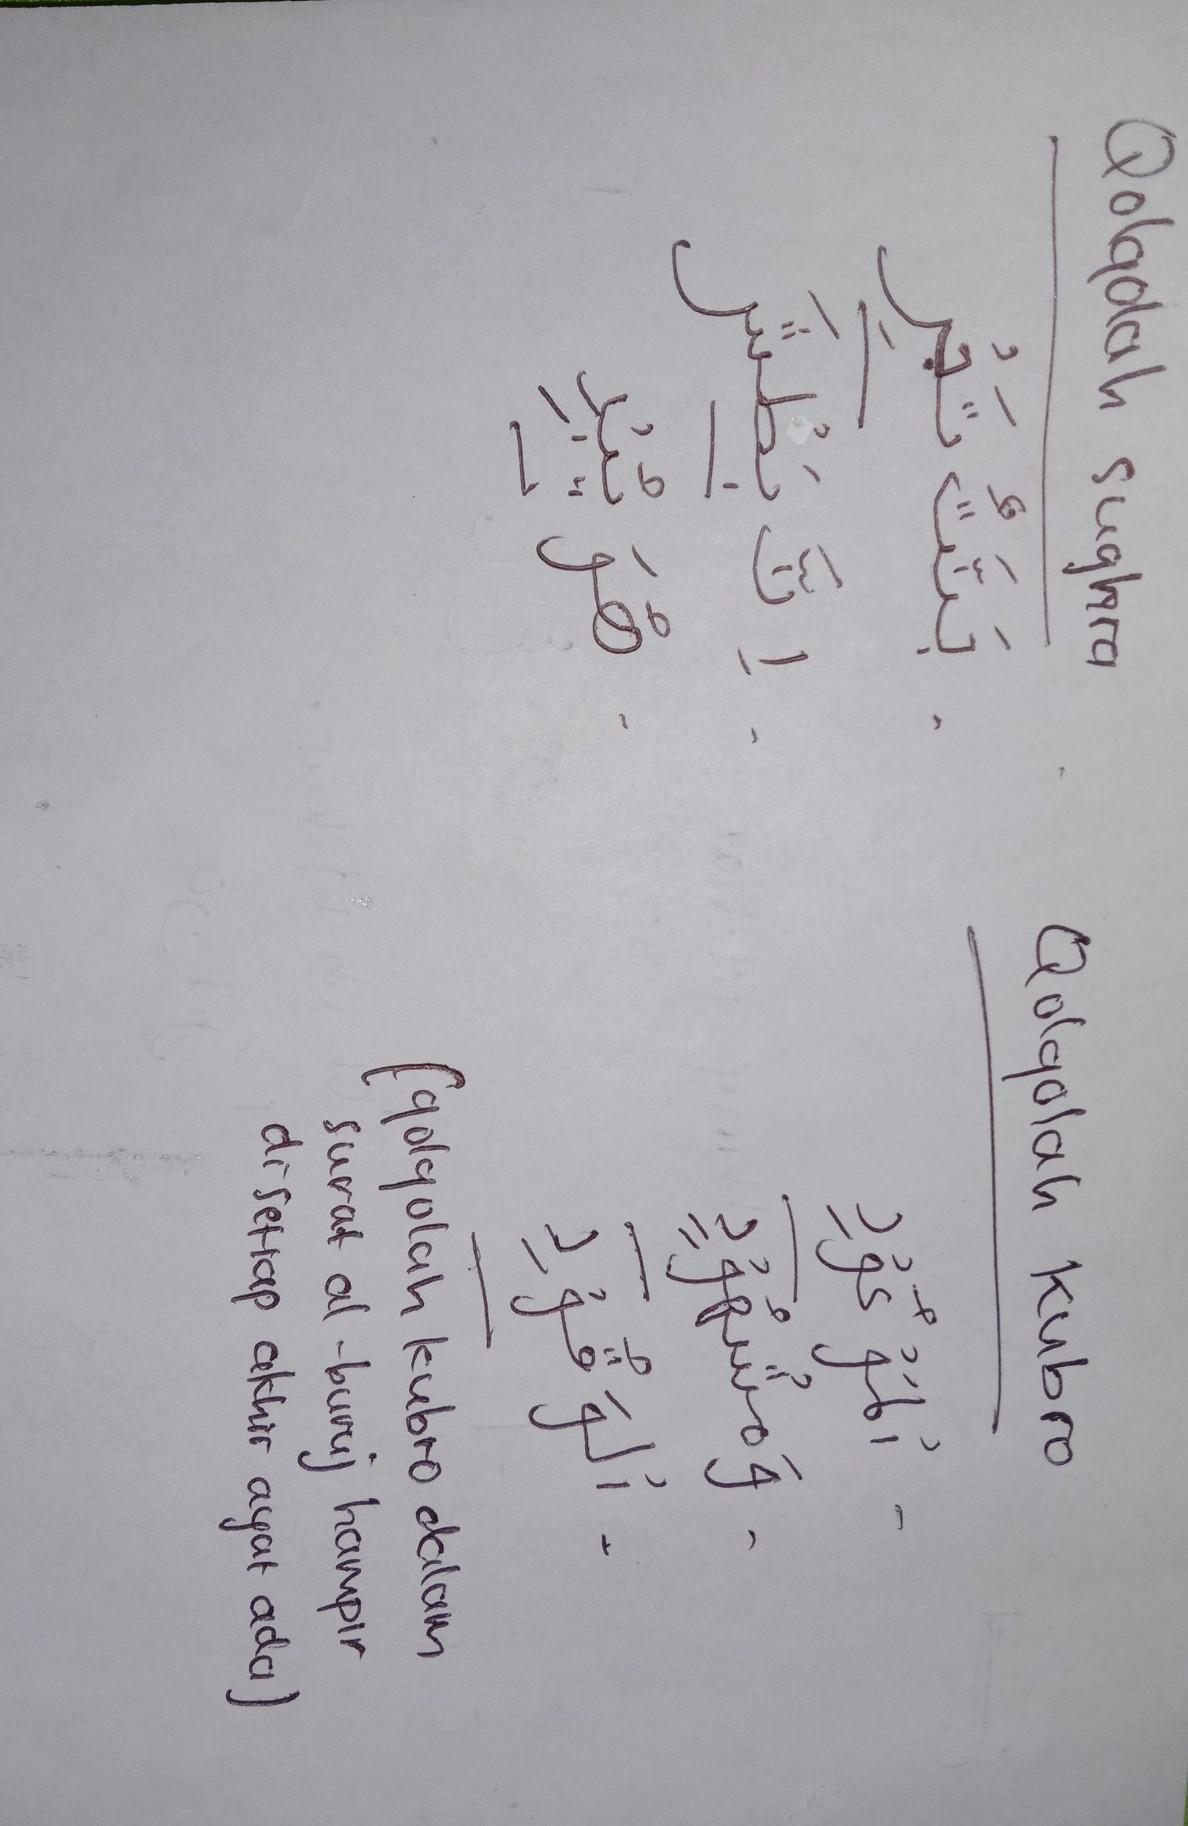 Qolqolah sughra
- جَنّٰتٌ تَجْرِ
- اِنَّ بَطْشَ
- هُوَ يُبْدِ
Qolqolah kubro
- اْلمَوْعُوْدِ
- وَمَشْهُوْدٍ
- اْلوَقُوْدِ
(qolqolah kubro dalam
surat al-buruj hampir
di setiap akhir ayat ada)